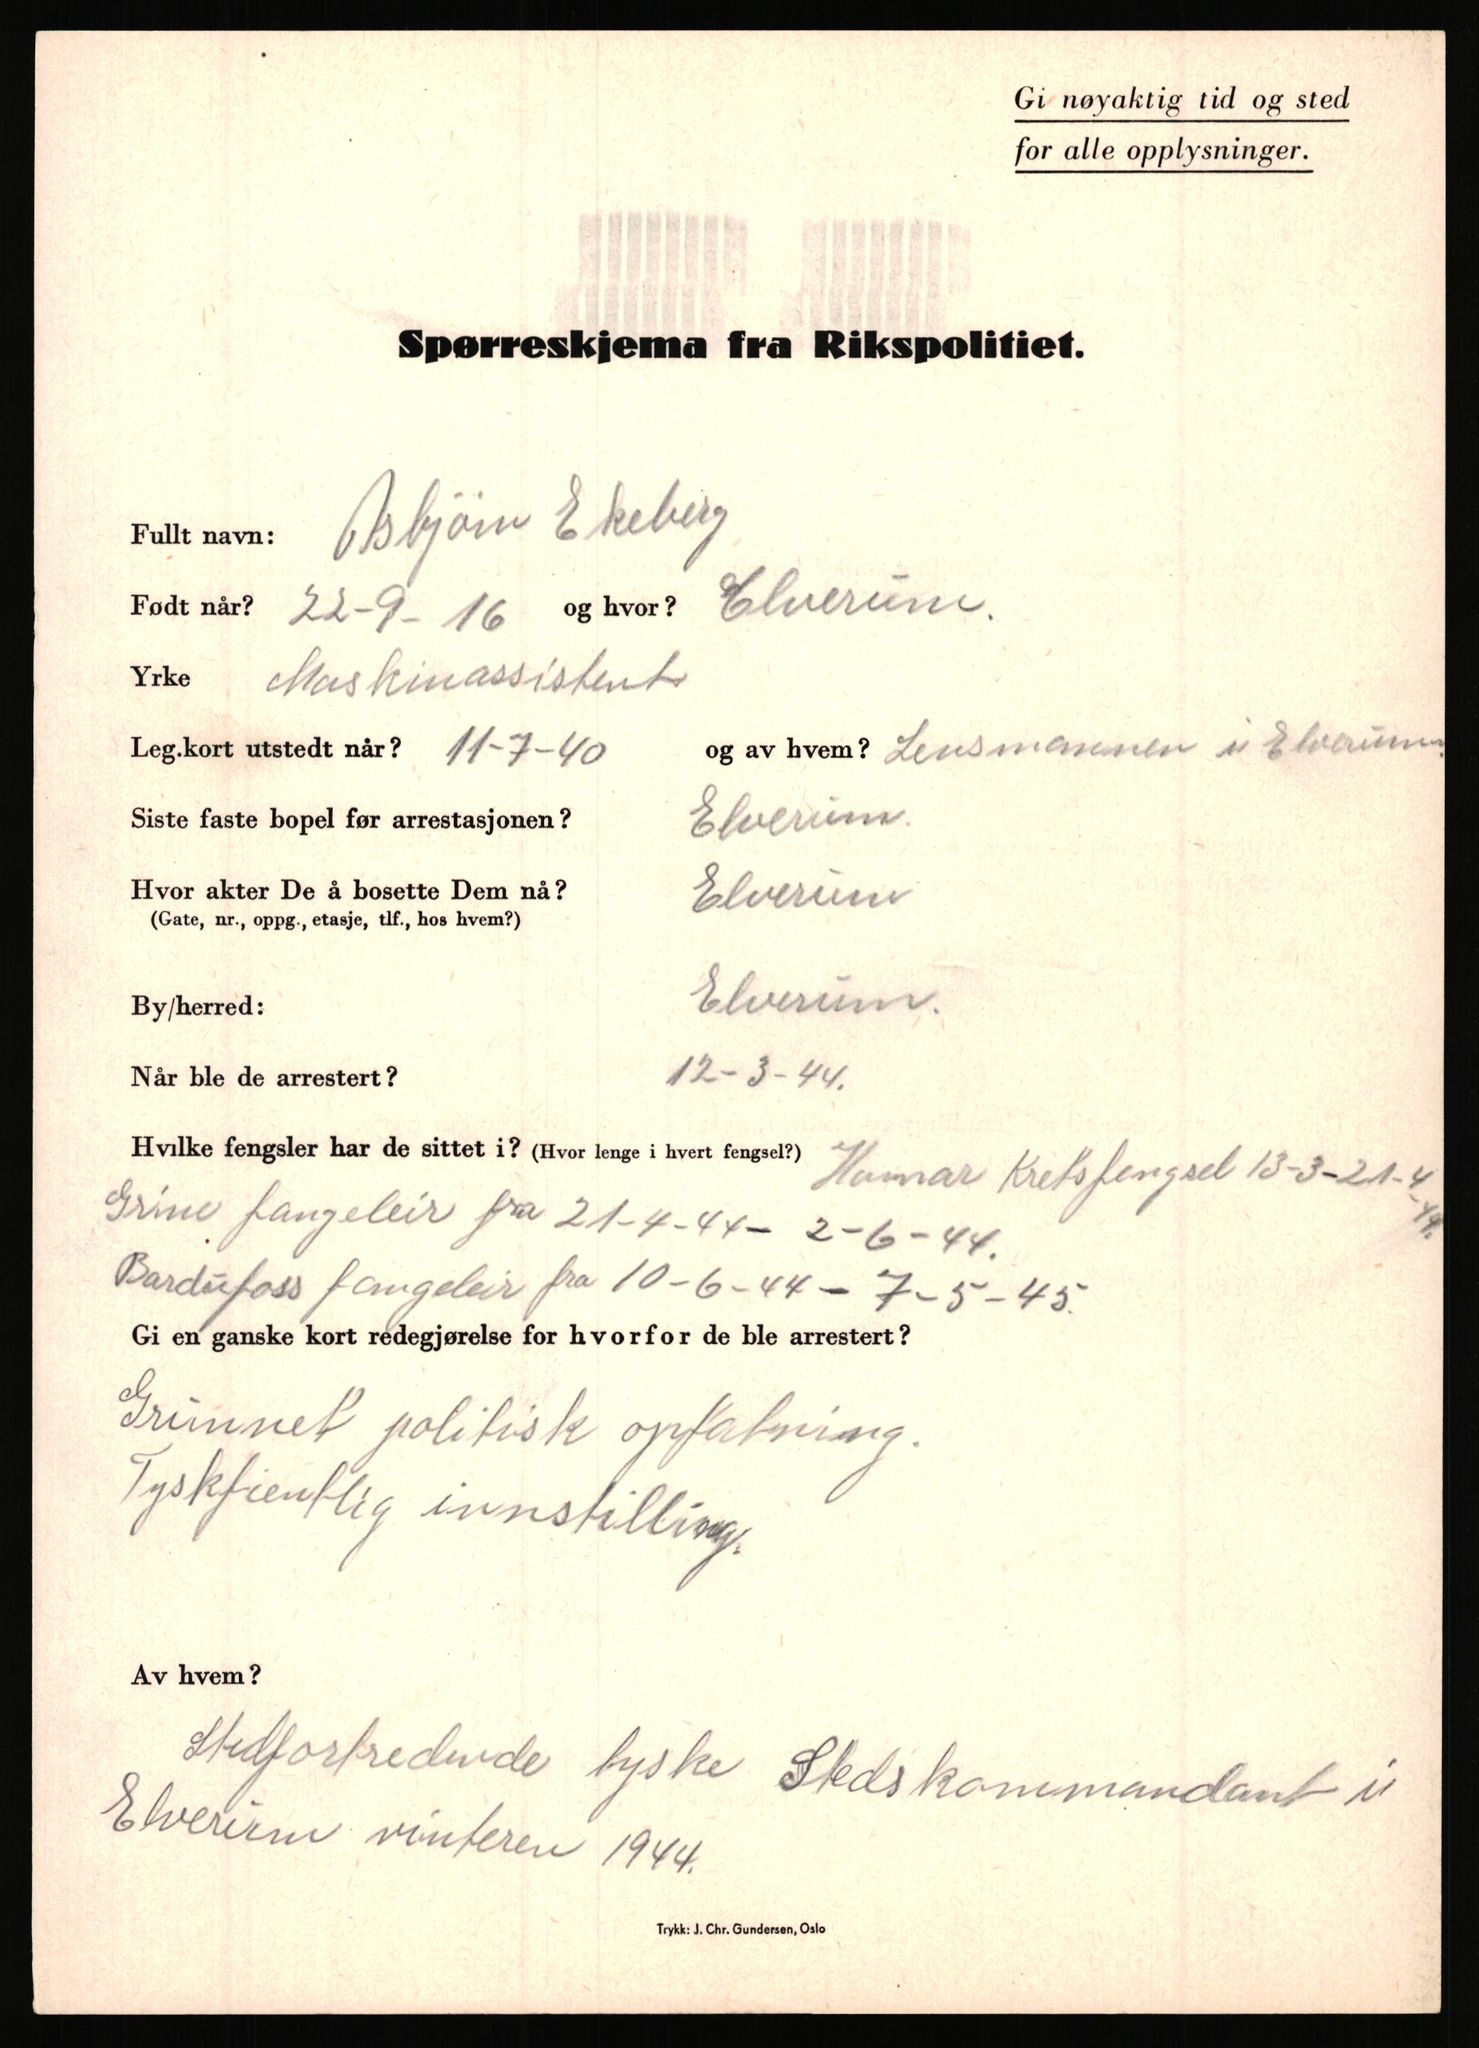 Gi nøyaktig tid og sted
for alle opplysninger.
Spørreskjema fra Rikspolitiet.
Fullt navn: Asbjörn Ekeberg
Født når? 22-9-16 og hvor? Elverum.
Yrke Maskinassistent
Leg.kort utstedt når? 11-7-40 og av hvem? Lensmannen i Elverum.
Siste faste bopel før arrestasjonen? Elverum.
Hvor akter De å bosette Dem nå? Elverum
(Gate, nr., oppg., etasje, tlf., hos hvem?)
By/herred: Elverum.
Når ble de arrestert? 12-3-44.
Hvilke fengsler har de sittet i? (Hvor lenge i hvert fengsel?) Hamar Kretsfengsel 13-3-21-4
-44.
Grini fangeleir fra 21-4-44 - 2-6-44.
Bardufoss fangeleir fra 10-6-44 - 7-5-45.
Gi en ganske kort redegjørelse for hvorfor de ble arrestert?
Grunnet politisk opfatning.
Tyskfientlig innstilling.
Av hvem?
Stedfortredende tyske Stedskommandant i
Elverum vinteren 1944.
Trykk: J. Chr. Gundersen, Oslo